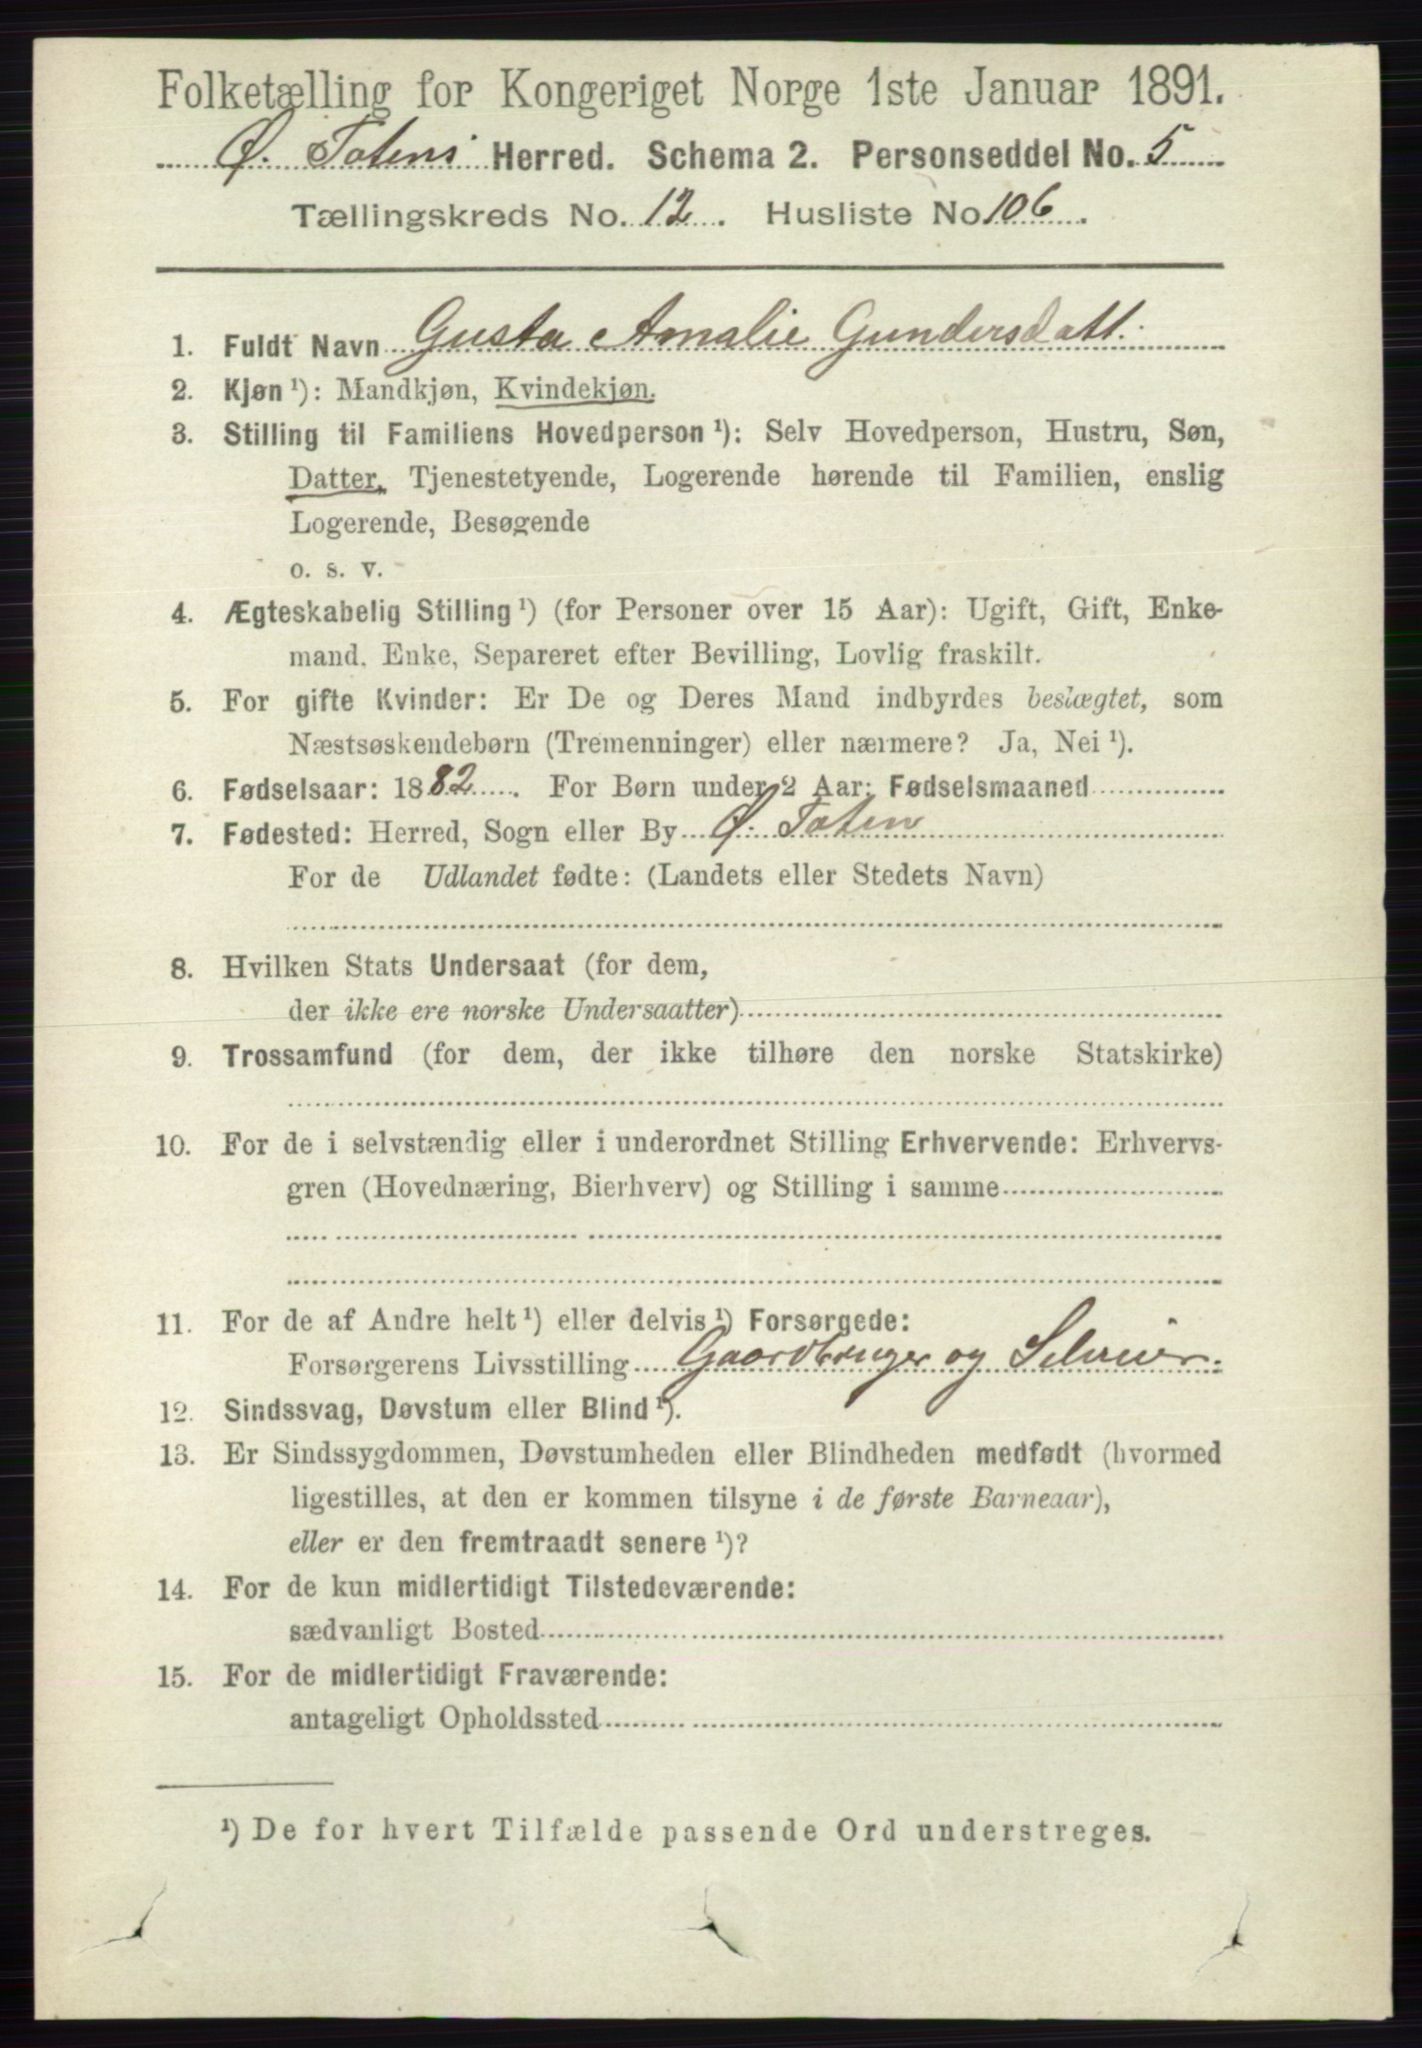 Folketælling for Kongeriget Norge 1ste Januar 1891.
Ø. Totens Herred. Schema 2. Personseddel No. 5
Tællingskreds No. 12. Husliste No 106.
1. Fuldt Navn Gusta Amalie Gundersdatt.
2. Kjøn ¹): Mandkjøn, Kvindekjøn.
3. Stilling til Familiens Hovedperson ¹): Selv Hovedperson, Hustru, Søn,
Datter, Tjenestetyende, Logerende hørende til Familien, enslig
Logerende, Besøgende
o. s. v.
4. Ægteskabelig Stilling ¹) (for Personer over 15 Aar): Ugift, Gift, Enke-
mand, Enke, Separeret efter Bevilling, Lovlig fraskilt.
5. For gifte Kvinder: Er De og Deres Mand indbyrdes beslægtet, som
Næstsøskendebørn (Tremenninger) eller nærmere? Ja, Nei ¹).
6. Fødselsaar: 1882. For Børn under 2 Aar: Fødselsmaaned
7. Fødested: Herred, Sogn eller By Ø. Toten
For de Udlandet fødte: (Landets eller Stedets Navn)
8. Hvilken Stats Undersaat (for dem,
der ikke ere norske Undersaatter)
9. Trossamfund (for dem, der ikke tilhøre den norske Statskirke)
10. For de i selvstændig eller i underordnet Stilling Erhvervende: Erhvervs-
gren (Hovednæring, Bierhverv) og Stilling i samme
11. For de af Andre helt ¹) eller delvis ¹) Forsørgede:
Forsørgerens Livsstilling Gaardbruger og
12. Sindssvag, Døvstum eller Blind ¹).
13. Er Sindssygdommen, Døvstumheden eller Blindheden medfødt (hvormed
ligestilles, at den er kommen tilsyne i de første Barneaar),
eller er den fremtraadt senere ¹)?
14. For de kun midlertidigt Tilstedeværende:
sædvanligt Bosted
15. For de midlertidigt Fraværende:
antageligt Opholdssted
¹) De for hvert Tilfælde passende Ord understreges.